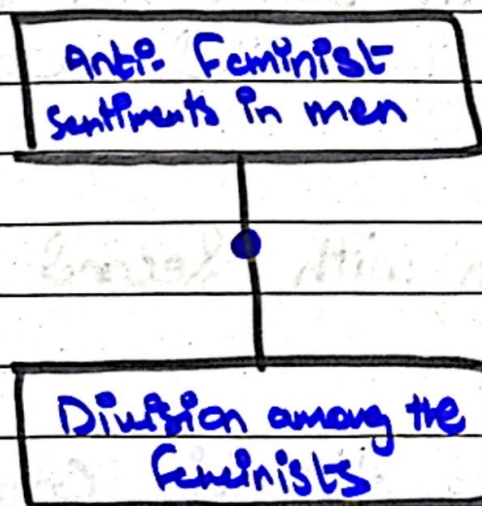 Anti- Feminist
sentiments in men
Division among the
feminists